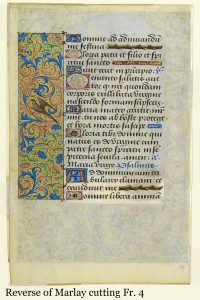 Domine ad adiuvandu
me festina
Gloria patri et filio et spi
ritui sancto
Sicut erat in principio
salutis
auctor q nri quondam
corporis ex illibata virgine
nascendo formam sumpse
ris Maria mater gratie
mater mie, tu nos ab hoste protege
et hora mortis suscipe
Gloria tibi domine qui
natus es de virgine cum
patre et sancto spiritu in se
piterna secula amen
Maria virgo
tribu
larer clamavi et
exaudivit me
Domine libera animā
Reverse of Marlay cutting Fr. 4